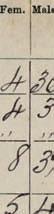 Fem. Male
4 3
4 3
,, ,,
8 3
5 4